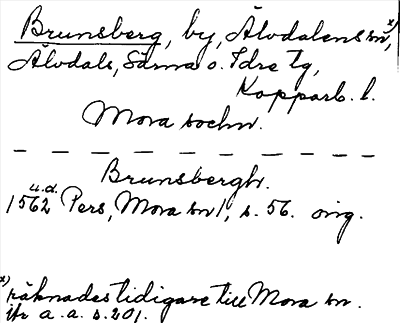 Brunsberg, by, Älvdalens sn,x)
Älvdals, Särna o. Idre tg,
Kopparb. l.
Mora sochn.
Brunsbergh.
u.d.
1562 Pers, Mora sn 1, s. 56. orig.
x) räknades tidigare till Mora sn.
jfr a.a. s. 201.